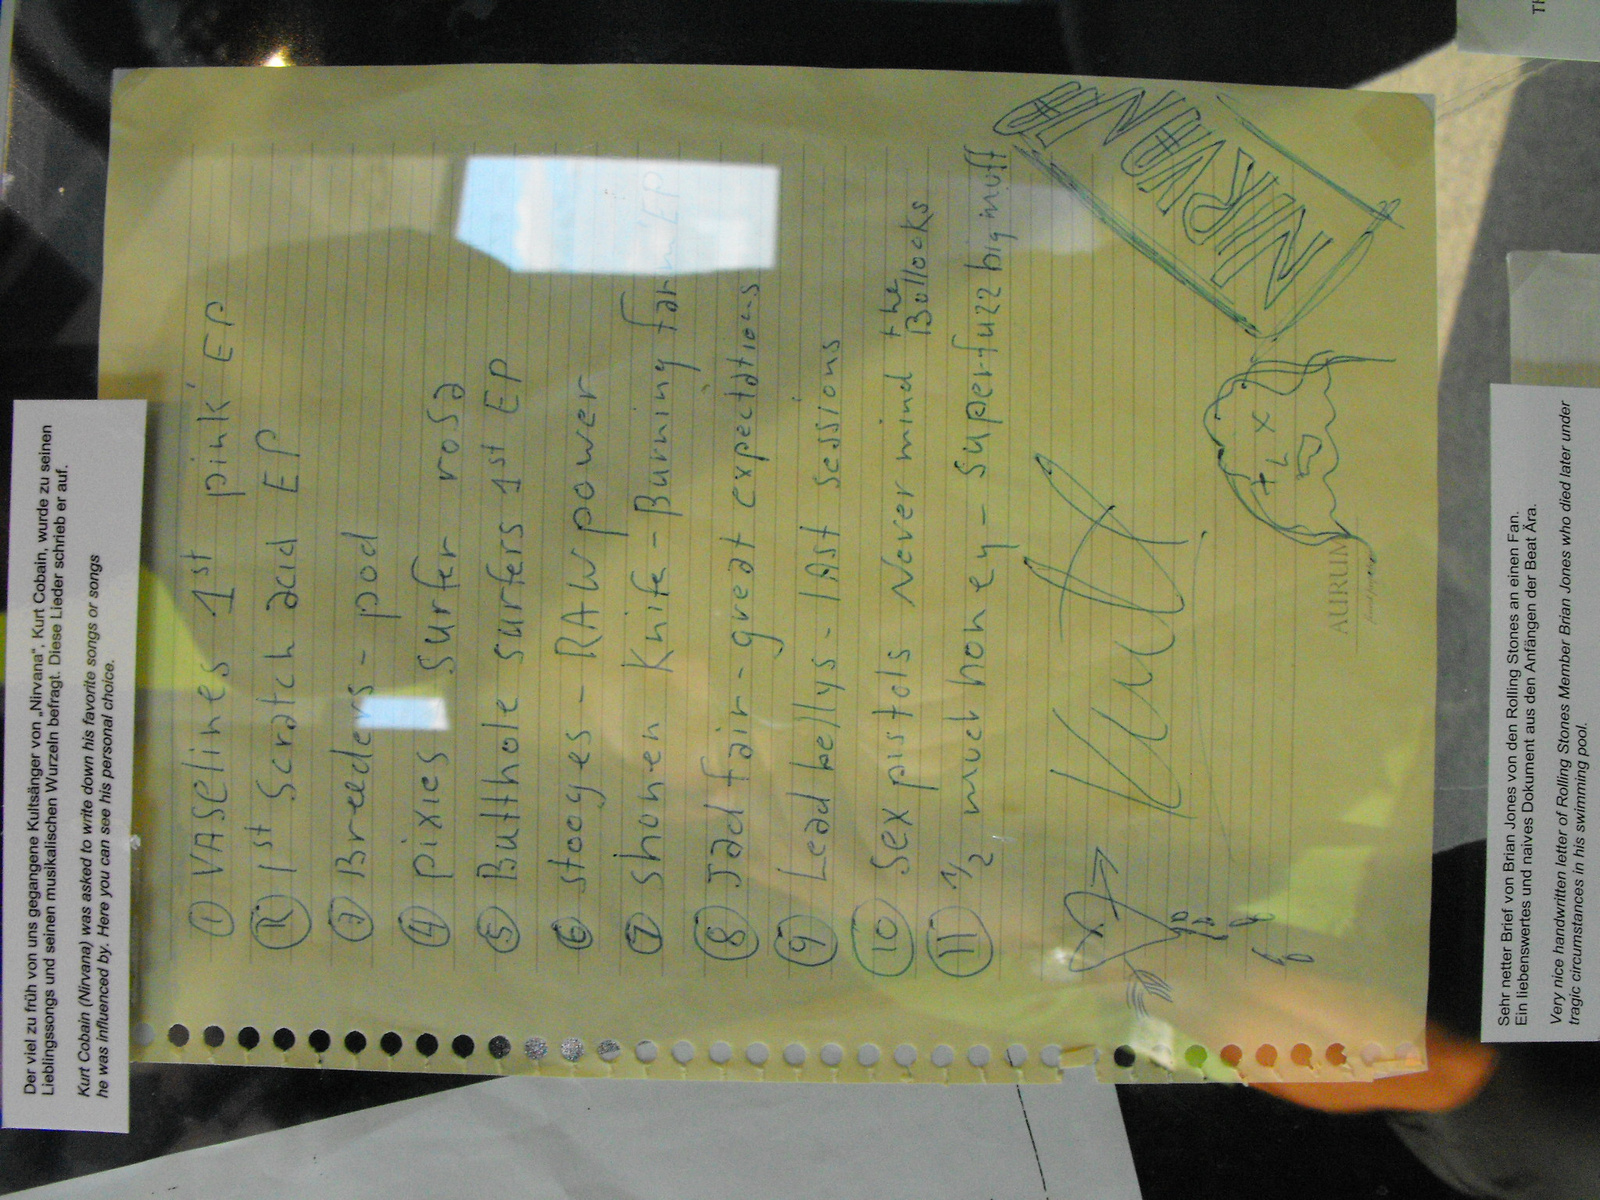 Der viel zu früh von uns gegangene Kultsänger von „Nirvana“, Kurt Cobain, wurde zu seinen
Lieblingssongs und seinen musikalischen Wurzeln befragt. Diese Lieder schrieb er auf.
Kurt Cobain (Nirvana) was asked to write down his favorite songs or songs
he was influenced by. Here you can see his personal choice.
① VASELINES 1st pink EP
1st Scratch acid EP
③ Breeders - pod
④ pixies surfer rosa
⑤ Butthole surfers 1st EP
⑥ stooges - RAW power
⑦ shonen Knife - Burning farm EP
⑧ Jad fair - great expectations
⑨ Lead bellys - lAst sessions
⑩ Sex pistols Never mind the Bollocks
⑪ 1/2 muchoney - superfuzz bigmuff
Kurt
NIRVANA
AURUM
Sehr netter Brief von Brian Jones von den Rolling Stones an einen Fan.
Ein liebenswertes und naives Dokument aus den Anfängen der Beat Ära.
Very nice handwritten letter of Rolling Stones Member Brian Jones who died later under
tragic circumstances in his swimming pool.